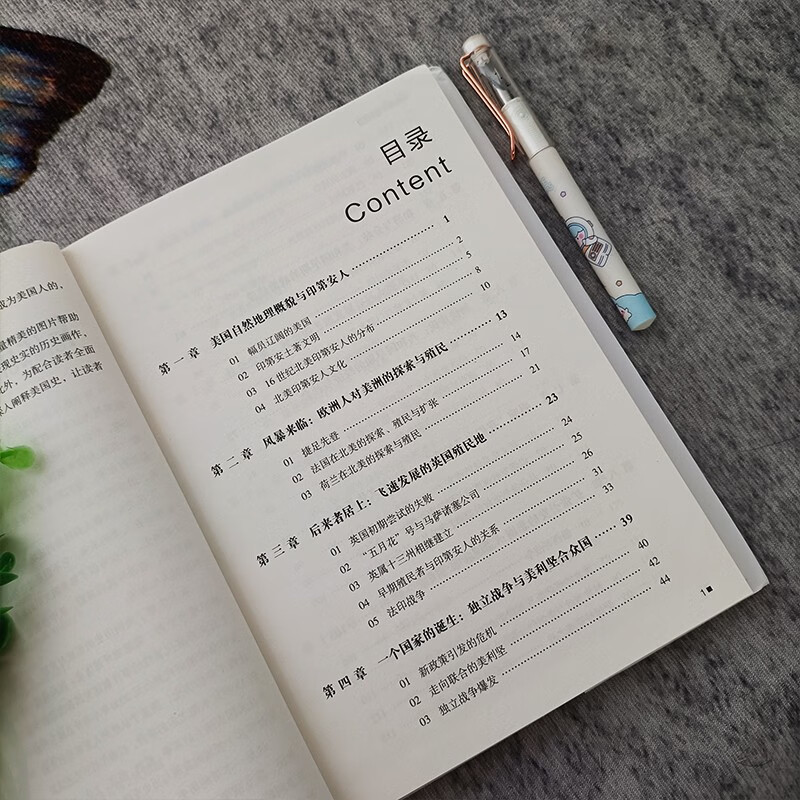 成为美国人的,
量精美的图片帮助
现史实的历史画作,
此外,为配合读者全面
人阐释美国史,让读者
目录
Content
第一章 美国自然地理概貌与印第安人 1
01 幅员辽阔的美国 2
02 印第安土著文明 5
03 16世纪北美印第安人的分布 8
04 北美印第安人文化 10
第二章 风暴来临:欧洲人对美洲的探索与殖民 13
01 捷足先登 14
02 法国在北美的探索、殖民与扩张 17
03 荷兰在北美的探索与殖民 21
第三章 后来者居上:飞速发展的英国殖民地 23
01 英国初期尝试的失败 24
02 “五月花”号与马萨诸塞公司 25
03 英属十三州相继建立 26
04 早期殖民者与印第安人的关系 31
05 法印战争 33
第四章 一个国家的诞生:独立战争与美利坚合众国 39
01 新政策引发的危机 40
02 走向联合的美利坚 42
03 独立战争爆发 44
1